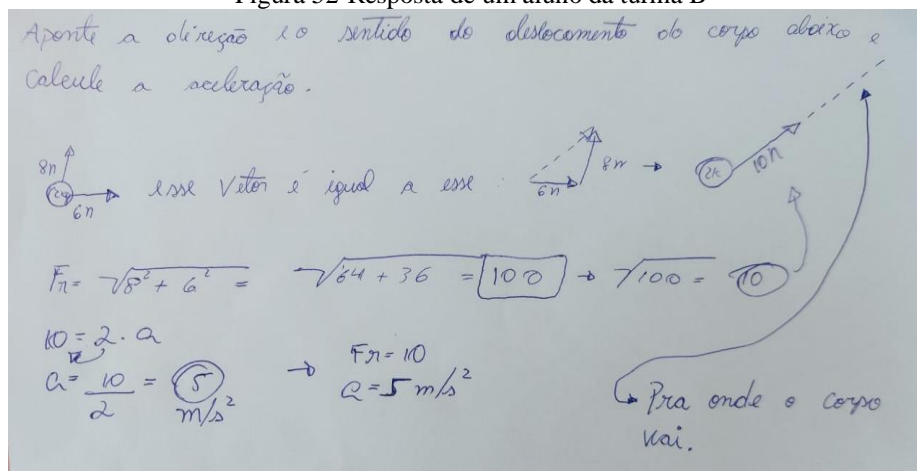 Figura 32-Resposta de um aluno da turma B
Aponte a direção e o sentido do deslocamento do corpo abaixo e
Calcule a aceleração.
8n 2kg 6n esse Vetor é igual a esse : 6n 8n → 2k 10n
Fr= √8² + 6² = √64 + 36 = 100 → √100 = 10
10 = 2 . a
a = 10/2 = 5 m/s² → Fr = 10
a = 5 m/s²
Pra onde o corpo
vai.